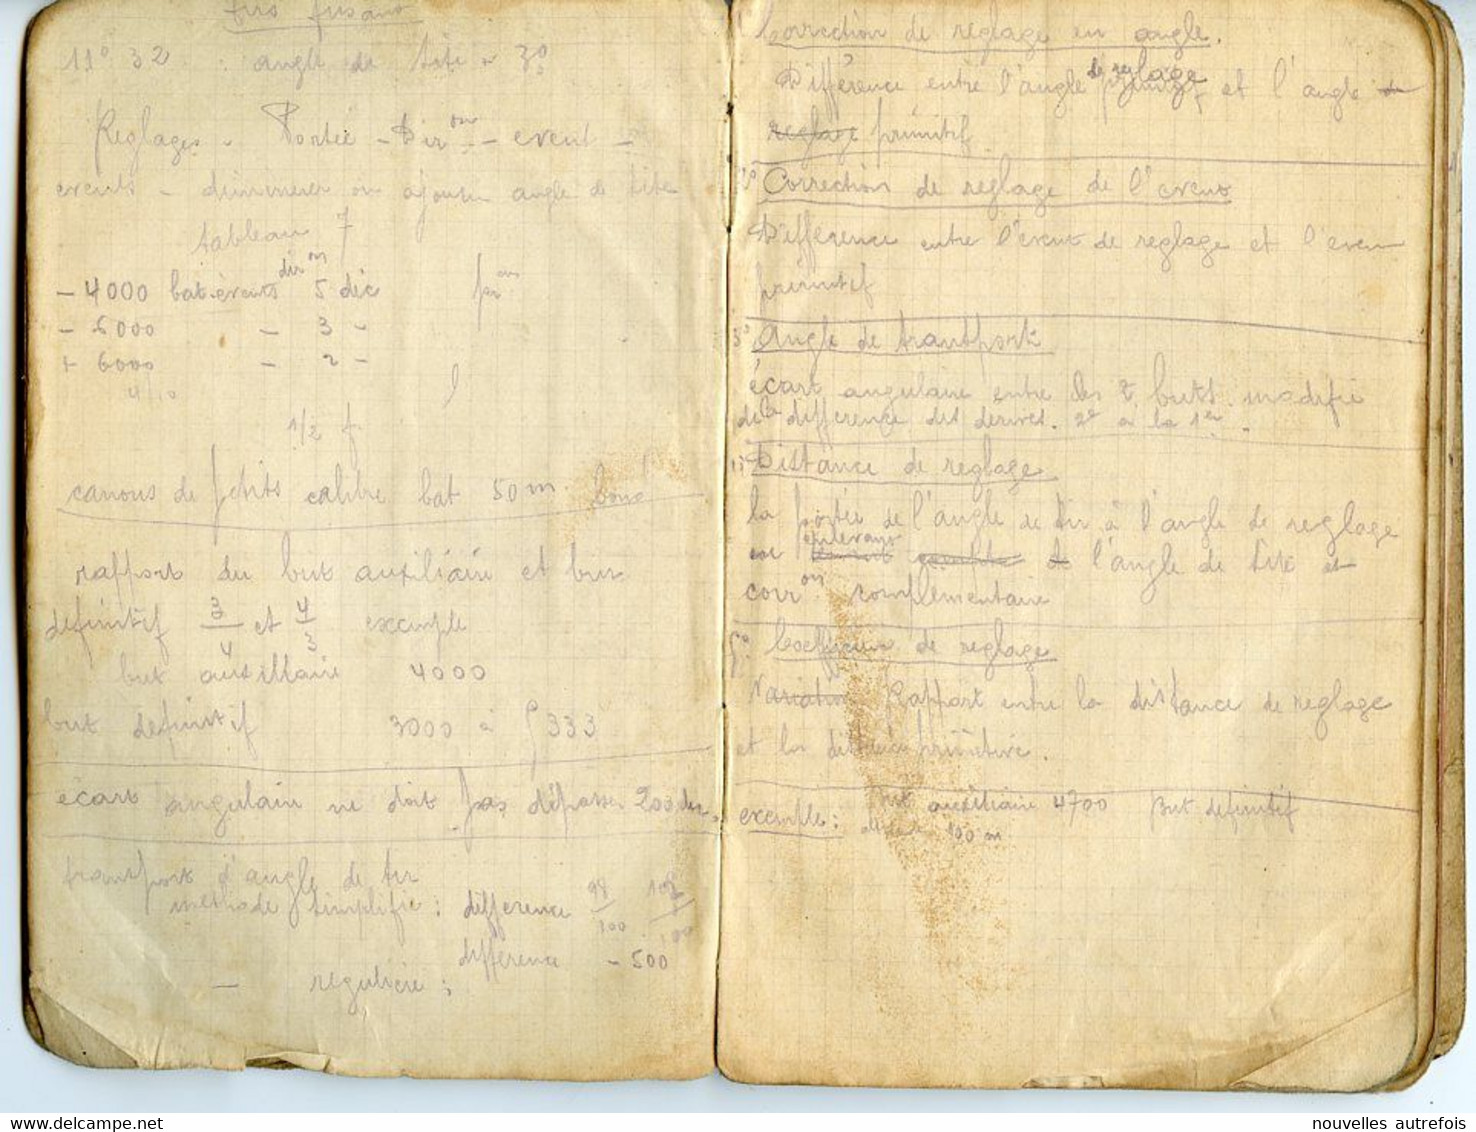 tirs fusants
11° 32 : angle de site - 3°
Reglages - Portée - Diron - event -
events - diminuer ou ajouter angle de site
tableau 7
- 4000 bat. events diron 5 dic
- 5000 - 3 -
+ 6000 - 2 -
4/10
1/2 f.
canons de petits calibre bat 50 m.
rapport du but auxiliaire et but
definitif 3/4 et 4/3 exemple
but auxiliaire 4000
but definitif 3000 à 5333
écart angulair ne doit pas dépasser 200
transport d'angle de tir
methode simplifie : difference 98/100 102/100
difference - 500
- reguliere :
Correction de reglage en angle.
Difference entre l'angle de reglage et l'angle de
reglage primitif
2° Correction de reglage de l'event
Difference entre l'event de reglage et l'even
primitif
3° Angle de transport
écart angulaire entre les 2 buts. modifie
de la difference des derives. 2e à la 1er.
Distance de reglage
la portée de l'angle de tir à l'angle de reglage
en enlevant l'angle de site et
corron complementaire
5° Coefficien de reglage
Variation Rapport entre la distance de reglage
et la distance primitive.
exemple : But auxiliaire 4700 But definitif
100 m
nouvelles autrefois
www.delcampe.net